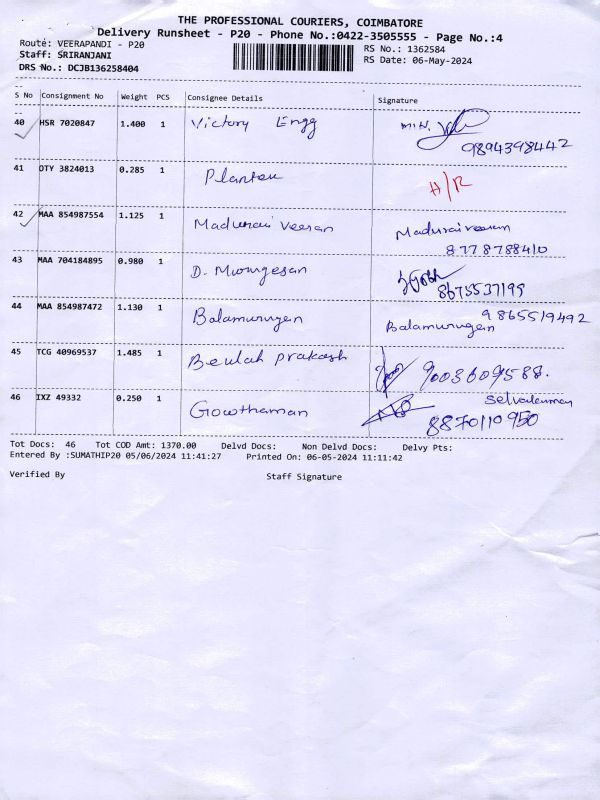 THE PROFESSIONAL COURIERS, COIMBATORE
Delivery Runsheet - P20 - Phone No.:0422-3505555 - Page No.:4
Route: VEERAPANDI - P20
RS No.: 1362584
Staff: SRIRANJANI
RS Date: 06-May-2024
DRS No.: DCJB136258404
S No Consignment No Weight PCS Consignee Details Signature
40 HSR 7020847 1.400 1 Victory Engg
9894398442
41 DTY 3824013 0.285 1 H/R
42 MAA 854987554 1.125 1 Madurai Veeran Maduraiveeran
8778788410
43 MAA 704184895 0.980 1 D. Murugesan
8675537199
44 MAA 854987472 1.130 1 Balamurugan 9865519492
Balamurugan
45 TCG 40969537 1.485 1 Beulah prakash 9003609588.
46 IXZ 49332 0.250 1 Gowthaman Selvakumar
8870110950
Tot Docs: 46 Tot COD Amt: 1370.00 Delvd Docs: Non Delvd Docs: Delvy Pts:
Entered By :SUMATHIP20 05/06/2024 11:41:27 Printed On: 06-05-2024 11:11:42
Verified By Staff Signature